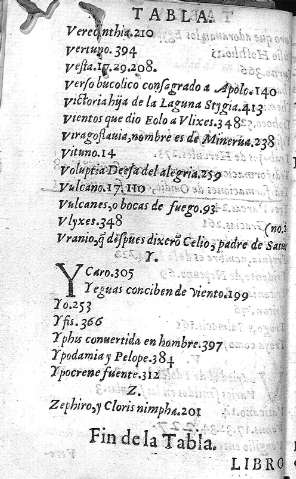 TABLA.
Verecinthia.210
Vertuno.394
Vesta.17.29.208.
Verso bucolico consagrado a Apolo.140
Victoria hija de la Laguna Stygia.413
Vientos que dio Eolo a Vlixes.348
Viragoflauia, nombre es de Minerua.238
Vituno.14
Voluptia Deesa del alegria.259
Vulcano.17.110
Vulcanes, o bocas de fuego.93
Vlyxes.348
(no.3
Vranio, q̃ despues dixerõ Celio, padre de Satur
Y.
YCaro.305
Yeguas conciben de viento.199
Yo.253
Yfis.366
Yphis conuertida en hombre.397
Ypodamia y Pelope.384
Ypocrene fuente.312
Z.
Zephiro, y Cloris nimpha.201
Fin de la Tabla.
LIBRO